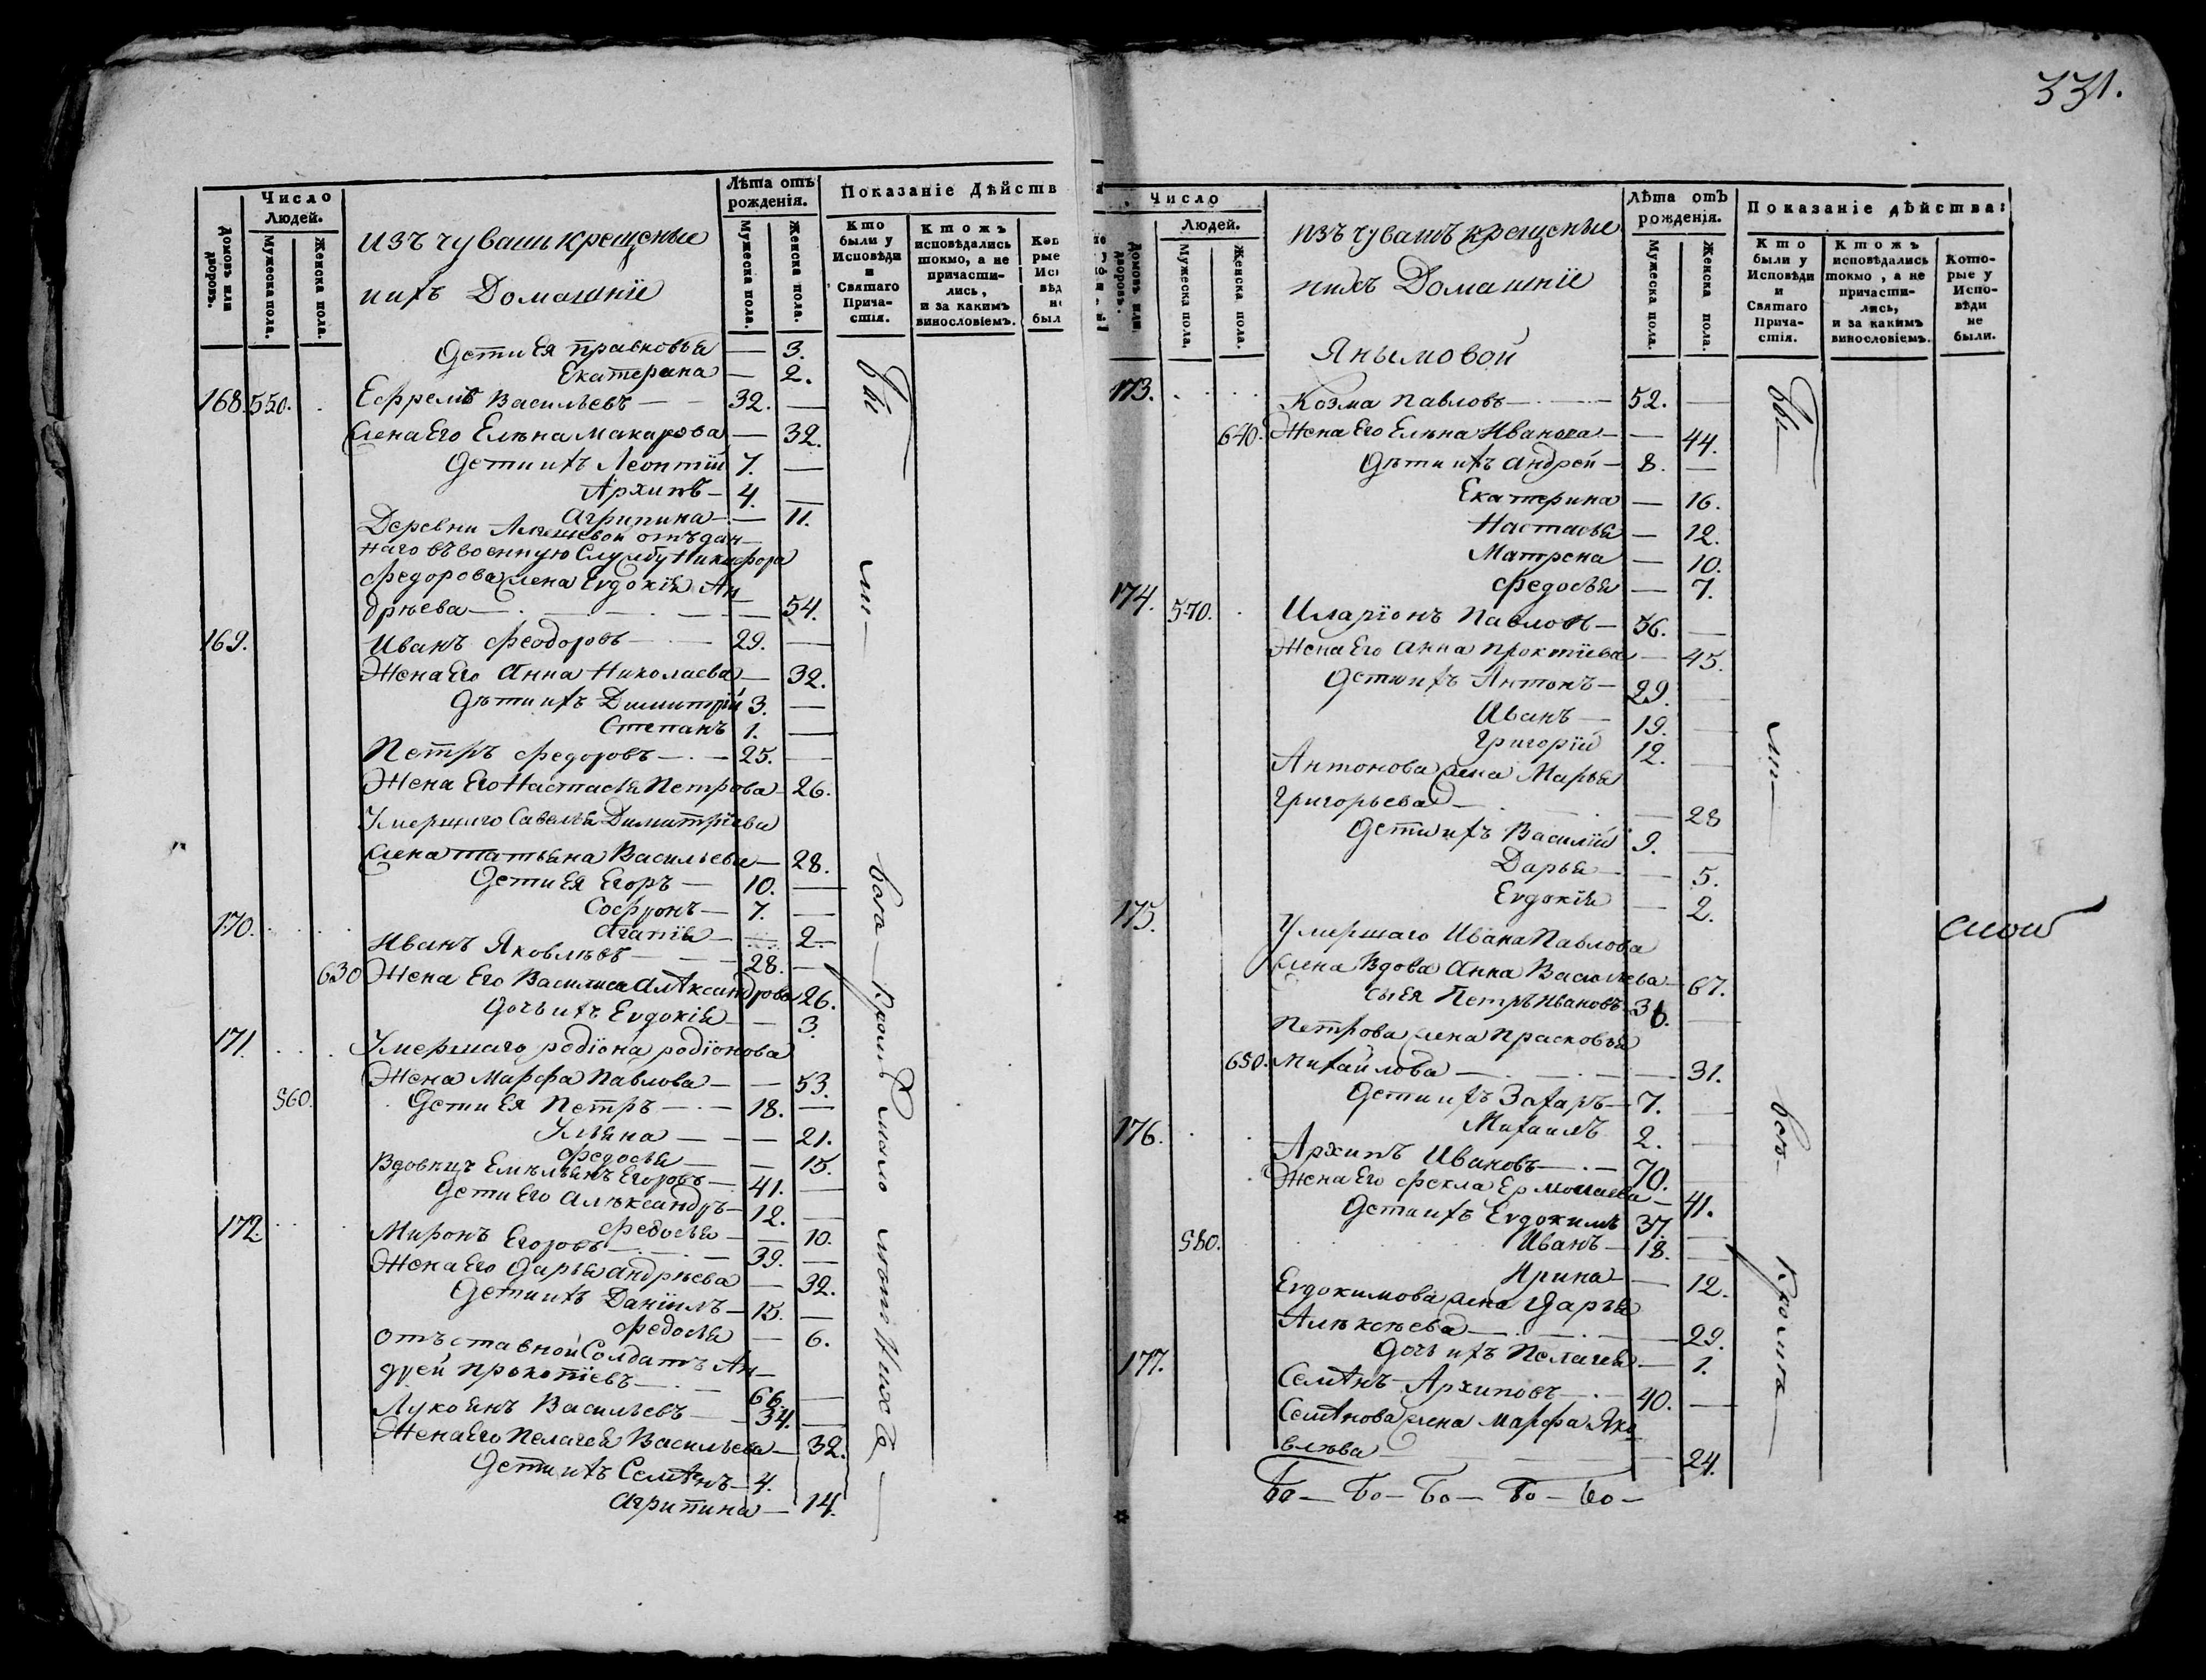 331.
Число
Людей.
Домовъ или дворовъ.
Мужеска пола.
Женска пола.
изъ чувашъ крещеные
нихъ Домашніе
Лѣта отъ рожденія.
Мужеска пола.
Женска пола.
Показаніе Дѣйств
Кто были у Исповѣди и Святаго Причастія.
Ктожъ исповѣдались токмо, а не причастились, и за какимъ винословіемъ.
Дети Ея Прасковья — 3.
Екатерина — 2.
168. 550. Ефремъ Васильевъ — 32. —
Жена Его Елѣна Макарова — 32.
Дети ихъ Леонтій 7. —
Архипъ — 4. —
Агрипина — 11.
Деревни отъдан
наго въ военную Службу Никифора
Федорова жена Евдокія Ан
дрѣева — 54.
169. Иванъ Феодоровъ — 29. —
Жена Его Анна Николаева — 32.
Дѣти ихъ Димитрій 3. —
Степанъ 1. —
Петръ Федоровъ — 25. —
Жена Его Настасья Петрова — 26.
Умершаго Савелья Димитріева
жена татьяна Васильева — 28.
Дети Ея Егоръ — 10. —
Софронъ — 7. —
Агапія — 2 —
170. Иванъ Яковлѣвъ — 28. —
630 Жена Его Василиса Алѣксандрова 26.
Дочь ихъ Евдокія — 3.
171. Умершаго родіона родіонова
Жена Марфа Павлова — 53.
560. Дети Ея Петръ — 18. —
Ульяна — 21.
Федосья — 15.
Вдовецъ Емѣльянъ Егоровъ — 41. —
Дети Его Алѣксандръ — 12. —
Федосья — 10.
172. Миронъ Егоровъ — 39. —
Жена Его Дарья Андрѣева — 32.
Дети ихъ Даніилъ — 15. —
Федосья — 6.
отъставной Солдатъ Ан
дрей Прокопіевъ — 66. —
Лукоянъ Васильевъ — 34. —
Жена Его Пелагея Васильева — 32.
Дети ихъ Семѣнъ — 4.
Агрипина — 14.
бы — ли — вси — Кромѣ мало
Число
Людей.
Домовъ или дворовъ.
Мужеска пола.
Женска пола.
изъ чувашъ крещеные
нихъ Домашніе
Лѣта отъ рожденія.
Мужеска пола.
Женска пола.
Показаніе дѣйства:
Кто были у Исповѣди и Святаго Причастія.
Ктожъ исповѣдались токмо, а не причастились, и за какимъ винословіемъ.
Которые у Исповѣди не были.
Янымовой
173. Козма Павловъ — 52. —
640. Жена Его Елѣна Иванова — 44.
Дѣти ихъ Андрей — 8. —
Екатерина — 16.
Настасья — 12.
Матрена — 10.
Федосья — 7.
174. 570. Иларіонъ Павловъ — 56. —
Жена Его Анна — 45.
Дети ихъ Антонъ — 29. —
Иванъ — 19. —
Григорій 12. —
Антонова жена Марья
Григорьева — 28
Дети ихъ Василій 9. —
Дарья — 5.
Евдокія — 2.
175. Умершаго Ивана Павлова
жена Вдова Анна Васильева — 67.
сынъ Ея Петръ Ивановъ 36. —
Петрова жена Прасковья
650. Михайлова — 31.
Дети ихъ Захаръ — 7. —
Михаилъ 2. —
176. Архипъ Ивановъ — 70. —
Жена Его Фекла Ермолаева — 41.
Дети ихъ Евдокимъ 37. —
580. Иванъ — 18. —
Ирина — 12.
Евдокимова жена Дарья
Алѣксѣева — 29.
Дочь ихъ Пелагея — 1.
177. Семѣнъ Архиповъ — 40. —
Семѣнова жена Марфа Яко
влѣва — 24.
бы — ли — вси — Кромѣ —